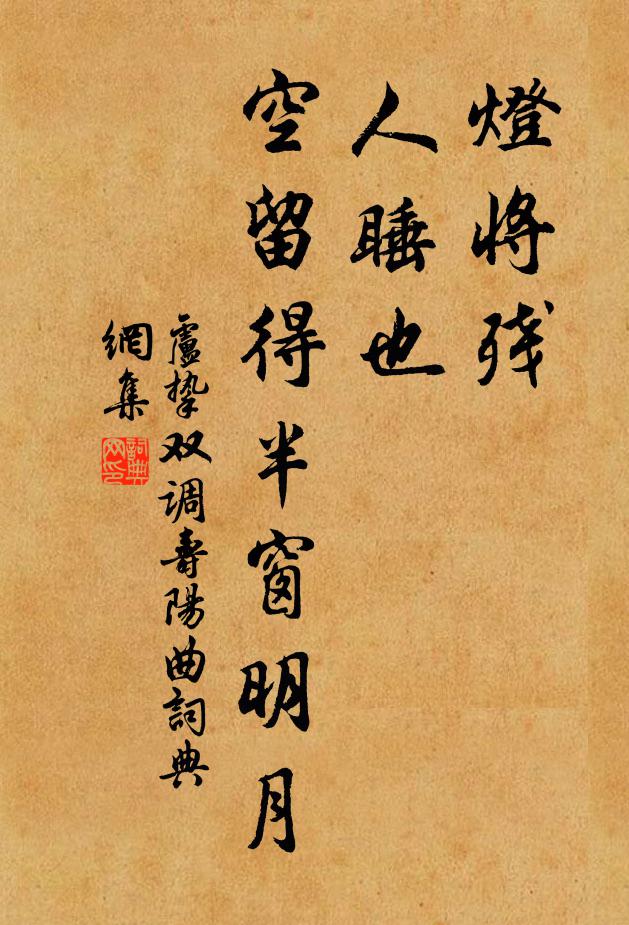 燈將殘
人睡也
空留得半窗明月
盧摯双调壽陽曲詞典
網集
詞典网印